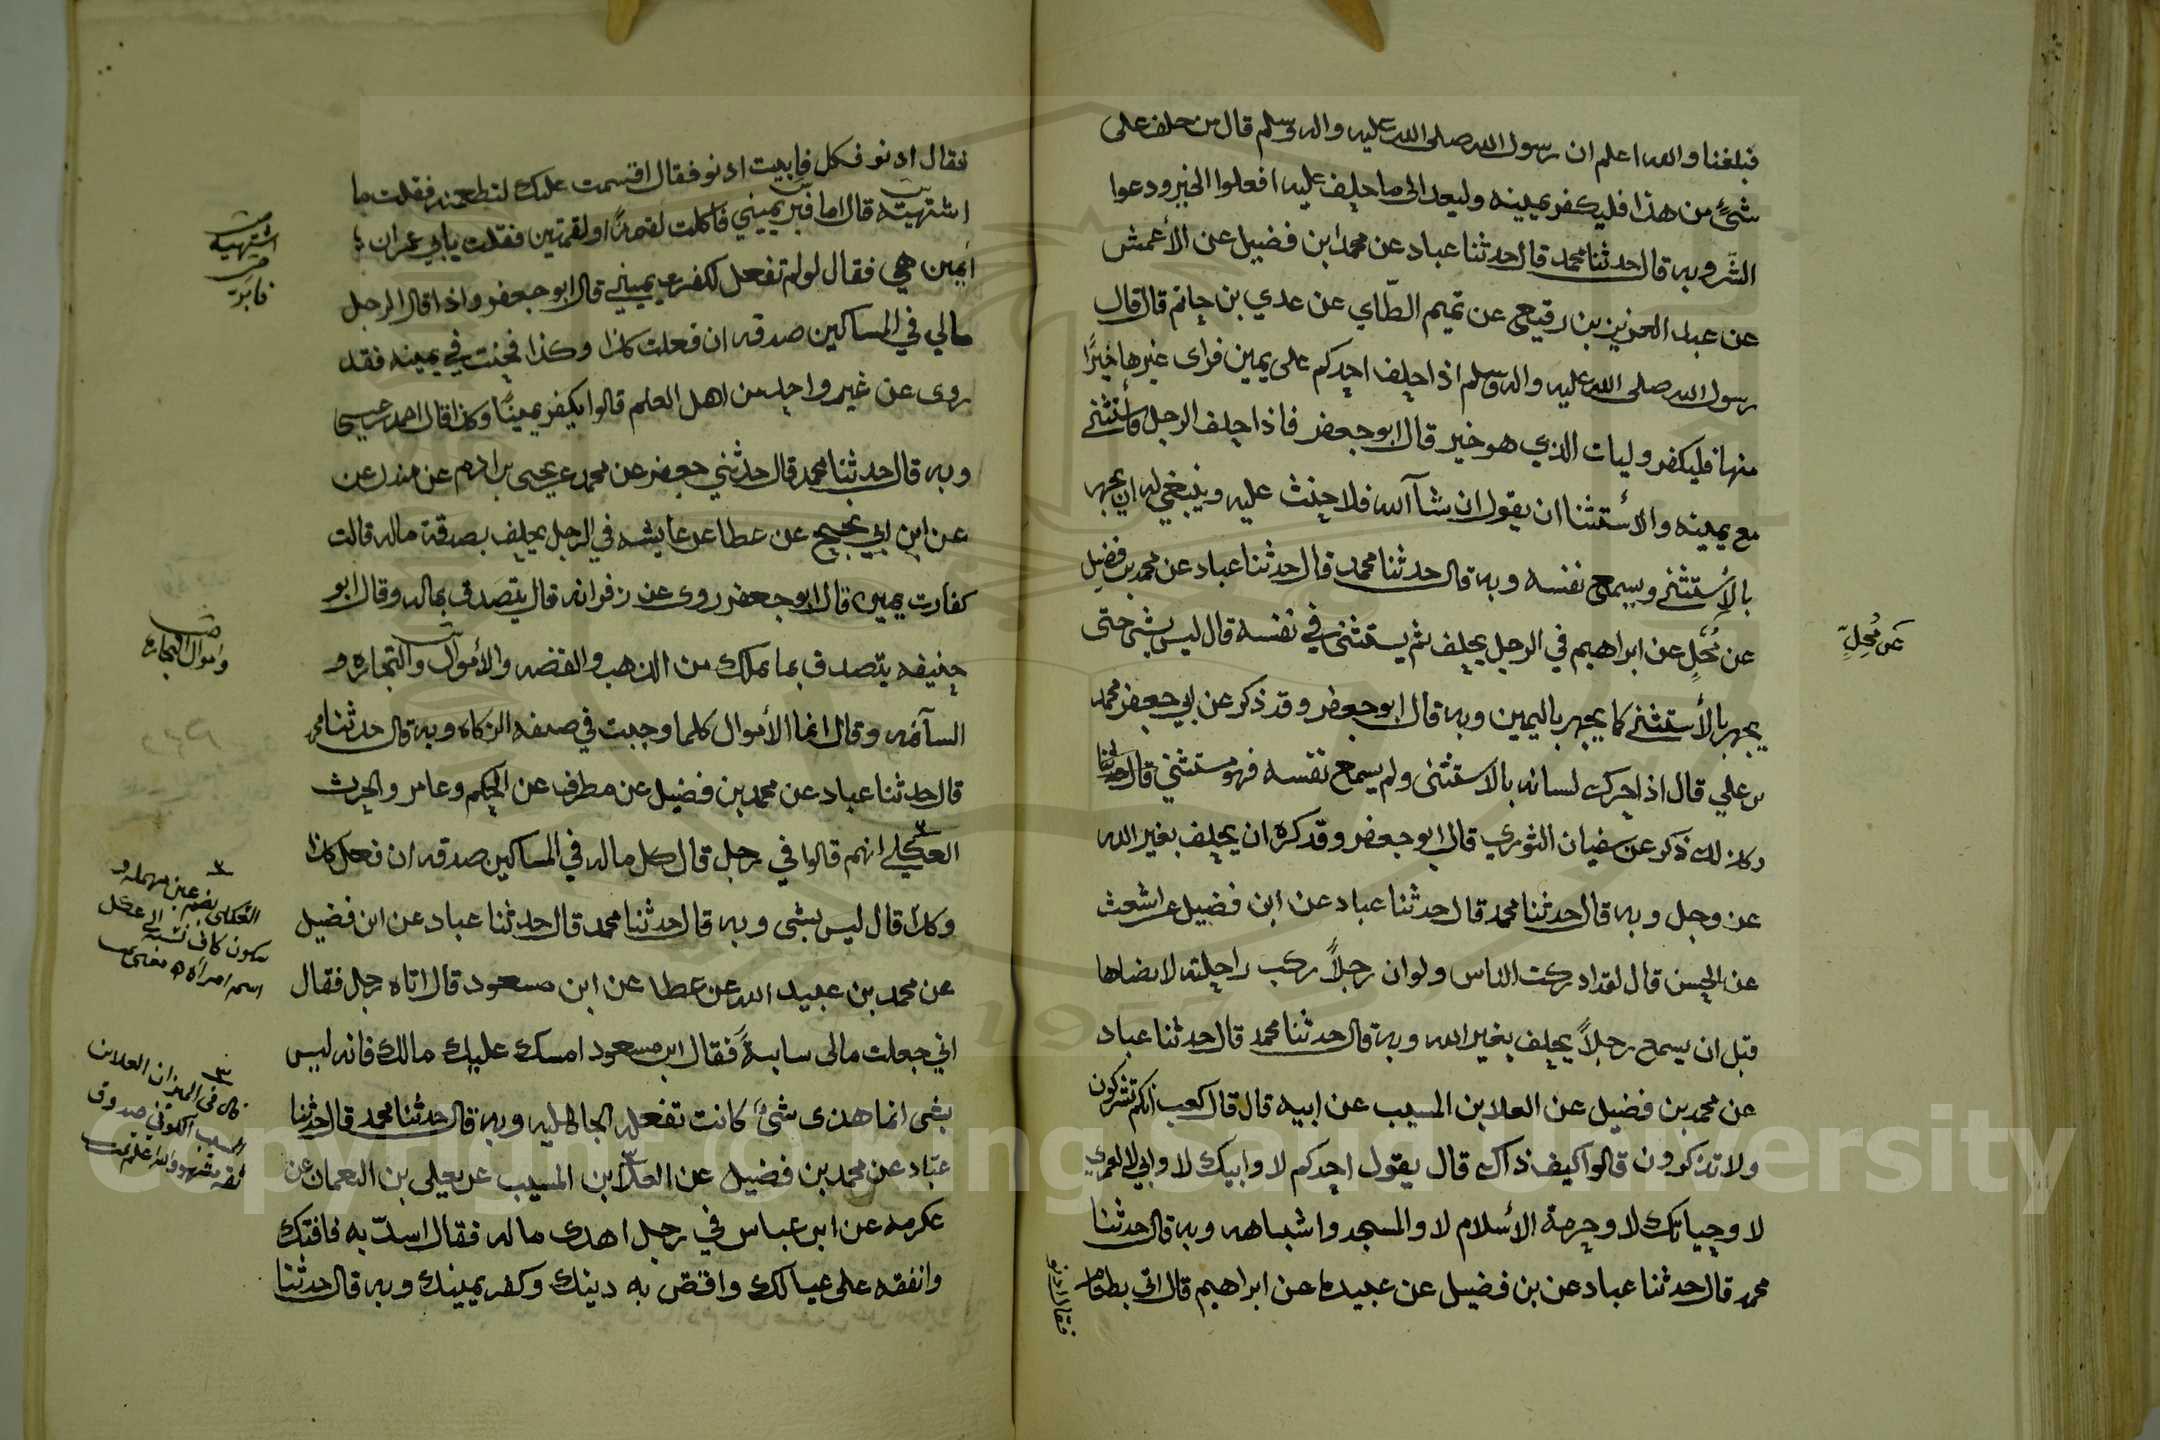 فبلغنا والله اعلم ان رسول الله صلى الله عليه واله وسلم قال من حلف على
شئ من هذا فليكفر يمينه وليعد الى ما حلف عليه افعلوا الخير ودعوا
الشر وبه قال حدثنا محمد قال حدثنا عباد عن محمد ابن فضيل عن الأعمش
عن عبد العزيز بن رقيع عن تميم الطاي عن عدي بن حاتم قال قال
رسول الله صلى الله عليه واله وسلم اذا حلف احدكم على يمين فراى غيرها خيرًا
منها فليكفر وليات الذي هو خير قال ابو جعفر فاذا حلف الرجل فأستثنى
مع يمينه والأستثنا ان يقول ان شآ الله فلا حنث عليه وينبغي له ان يجهر
بالأستثنى ويسمع نفسه وبه قال حدثنا محمد قال حدثنا عباد عن محمد بن فضيل
عن مُحِلٍ عن ابراهيم في الرجل يحلف ثم يستثنى في نفسه قال ليس بشى حتى
يجهر بالأستثنى كما يجهر باليمين وبه قال ابو جعفر وقد ذكر عن ابي جعفر محمد
بن علي قال اذا حرك لسانه بالاستثنى ولم يسمع نفسه فهو مستثني قال حدثنا
وكذلك ذكر عن سفيان الثوري قال ابو جعفر وقد كره ان يحلف بغير الله
عز وجل وبه قال حدثنا محمد قال حدثنا عباد عن ابن فضيل عن اشعث
عن الحسن قال لقد ادركت الناس ولو ان رجلاً ركب راحلته لانضاها
قبل ان يسمع رجلاً يحلف بغير الله وبه قال حدثنا محمد قال حدثنا عباد
عن محمد بن فضيل عن العلا بن المسيب عن ابيه قال قال كعب انكم تشركون
ولا تذكرون قالوا كيف ذاك قال يقول احدكم لا وابيك لا وابي لا لعمري
لا وحياتك لا وحرمة الأسلام لا والمسجد واشباهه وبه قال حدثنا
محمد قال حدثنا عباد عن بن فضيل عن عبيده عن ابراهيم قال اتي بطعام
فقال ادنو
عن مُحِلٍّ
فقال ادنو فكل فابيت ادنو فقال اقسمت عليك لتطعمنه فقلت ما
اشتهيته قال اما فبر يميني فاكلت لقمة او لقمتين فقلت يابا عمران
أيمين هي فقال لو لم تفعل لكفرت يميني قال ابو جعفر واذا قال الرجل
مالي في المساكين صدقه ان فعلت كذا وكذا فحنث في يمينه فقد
روى عن غير واحد من اهل العلم قالوا يكفر يمينًا وكذا قال احمد بن عيسى
وبه قال حدثنا محمد قال حدثني جعفر عن محمد عن يحيى بن ادم عن مندل عن
عن ابن ابي نجيح عن عطا عن عايشه في الرجل يحلف بصدقة ماله قالت
كفارت يمين قال ابو جعفر روى عن زفر انه قال يتصدق بماله وقال ابو
حنيفه يتصدق بما يملك من الذهب والفضه والأموال والتجاره و
السآئمه وقال انما الأموال كلما وجبت في صنفه الزكاه وبه قال حدثنا محمد
قال حدثنا عباد عن محمد بن فضيل عن مطرف عن الحكم وعامر والحرث
العكلي انهم قالوا في رجل قال كل ماله في المساكين صدقه ان فعل كذا
وكذا قال ليس بشى وبه قال حدثنا محمد قال حدثنا عباد عن ابن فضيل
عن محمد بن عبيد الله عن عطا عن ابن مسعود قال اتاه رجل فقال
اني جعلت مالى سايبةً فقال ابن مسعود امسك عليك مالك فانه ليس
بشى انما هذى شئ كانت تفعله الجاهليه وبه قال حدثنا محمد قال حدثنا
عبّاد عن محمد بن فضيل عن العلا بن المسيب عن يعلى بن النعمان عن
عكرمه عن ابن عباس في رجل اهدى ماله فقال اسدّ به فاقتك
وانفقه على عيالك واقض به دينك وكفر يمينك وبه قال حدثنا
اشتهيه
فابر
واموال التجاره
٣
العكلي بضم عين مهمله و
سكون كاف نسبة الى عكل
اسم امراة
٣
قال في الميزان العلا بن
المسيب الكوفي صدوق
ثقه مشهور
Copyright © King Saud University
1957